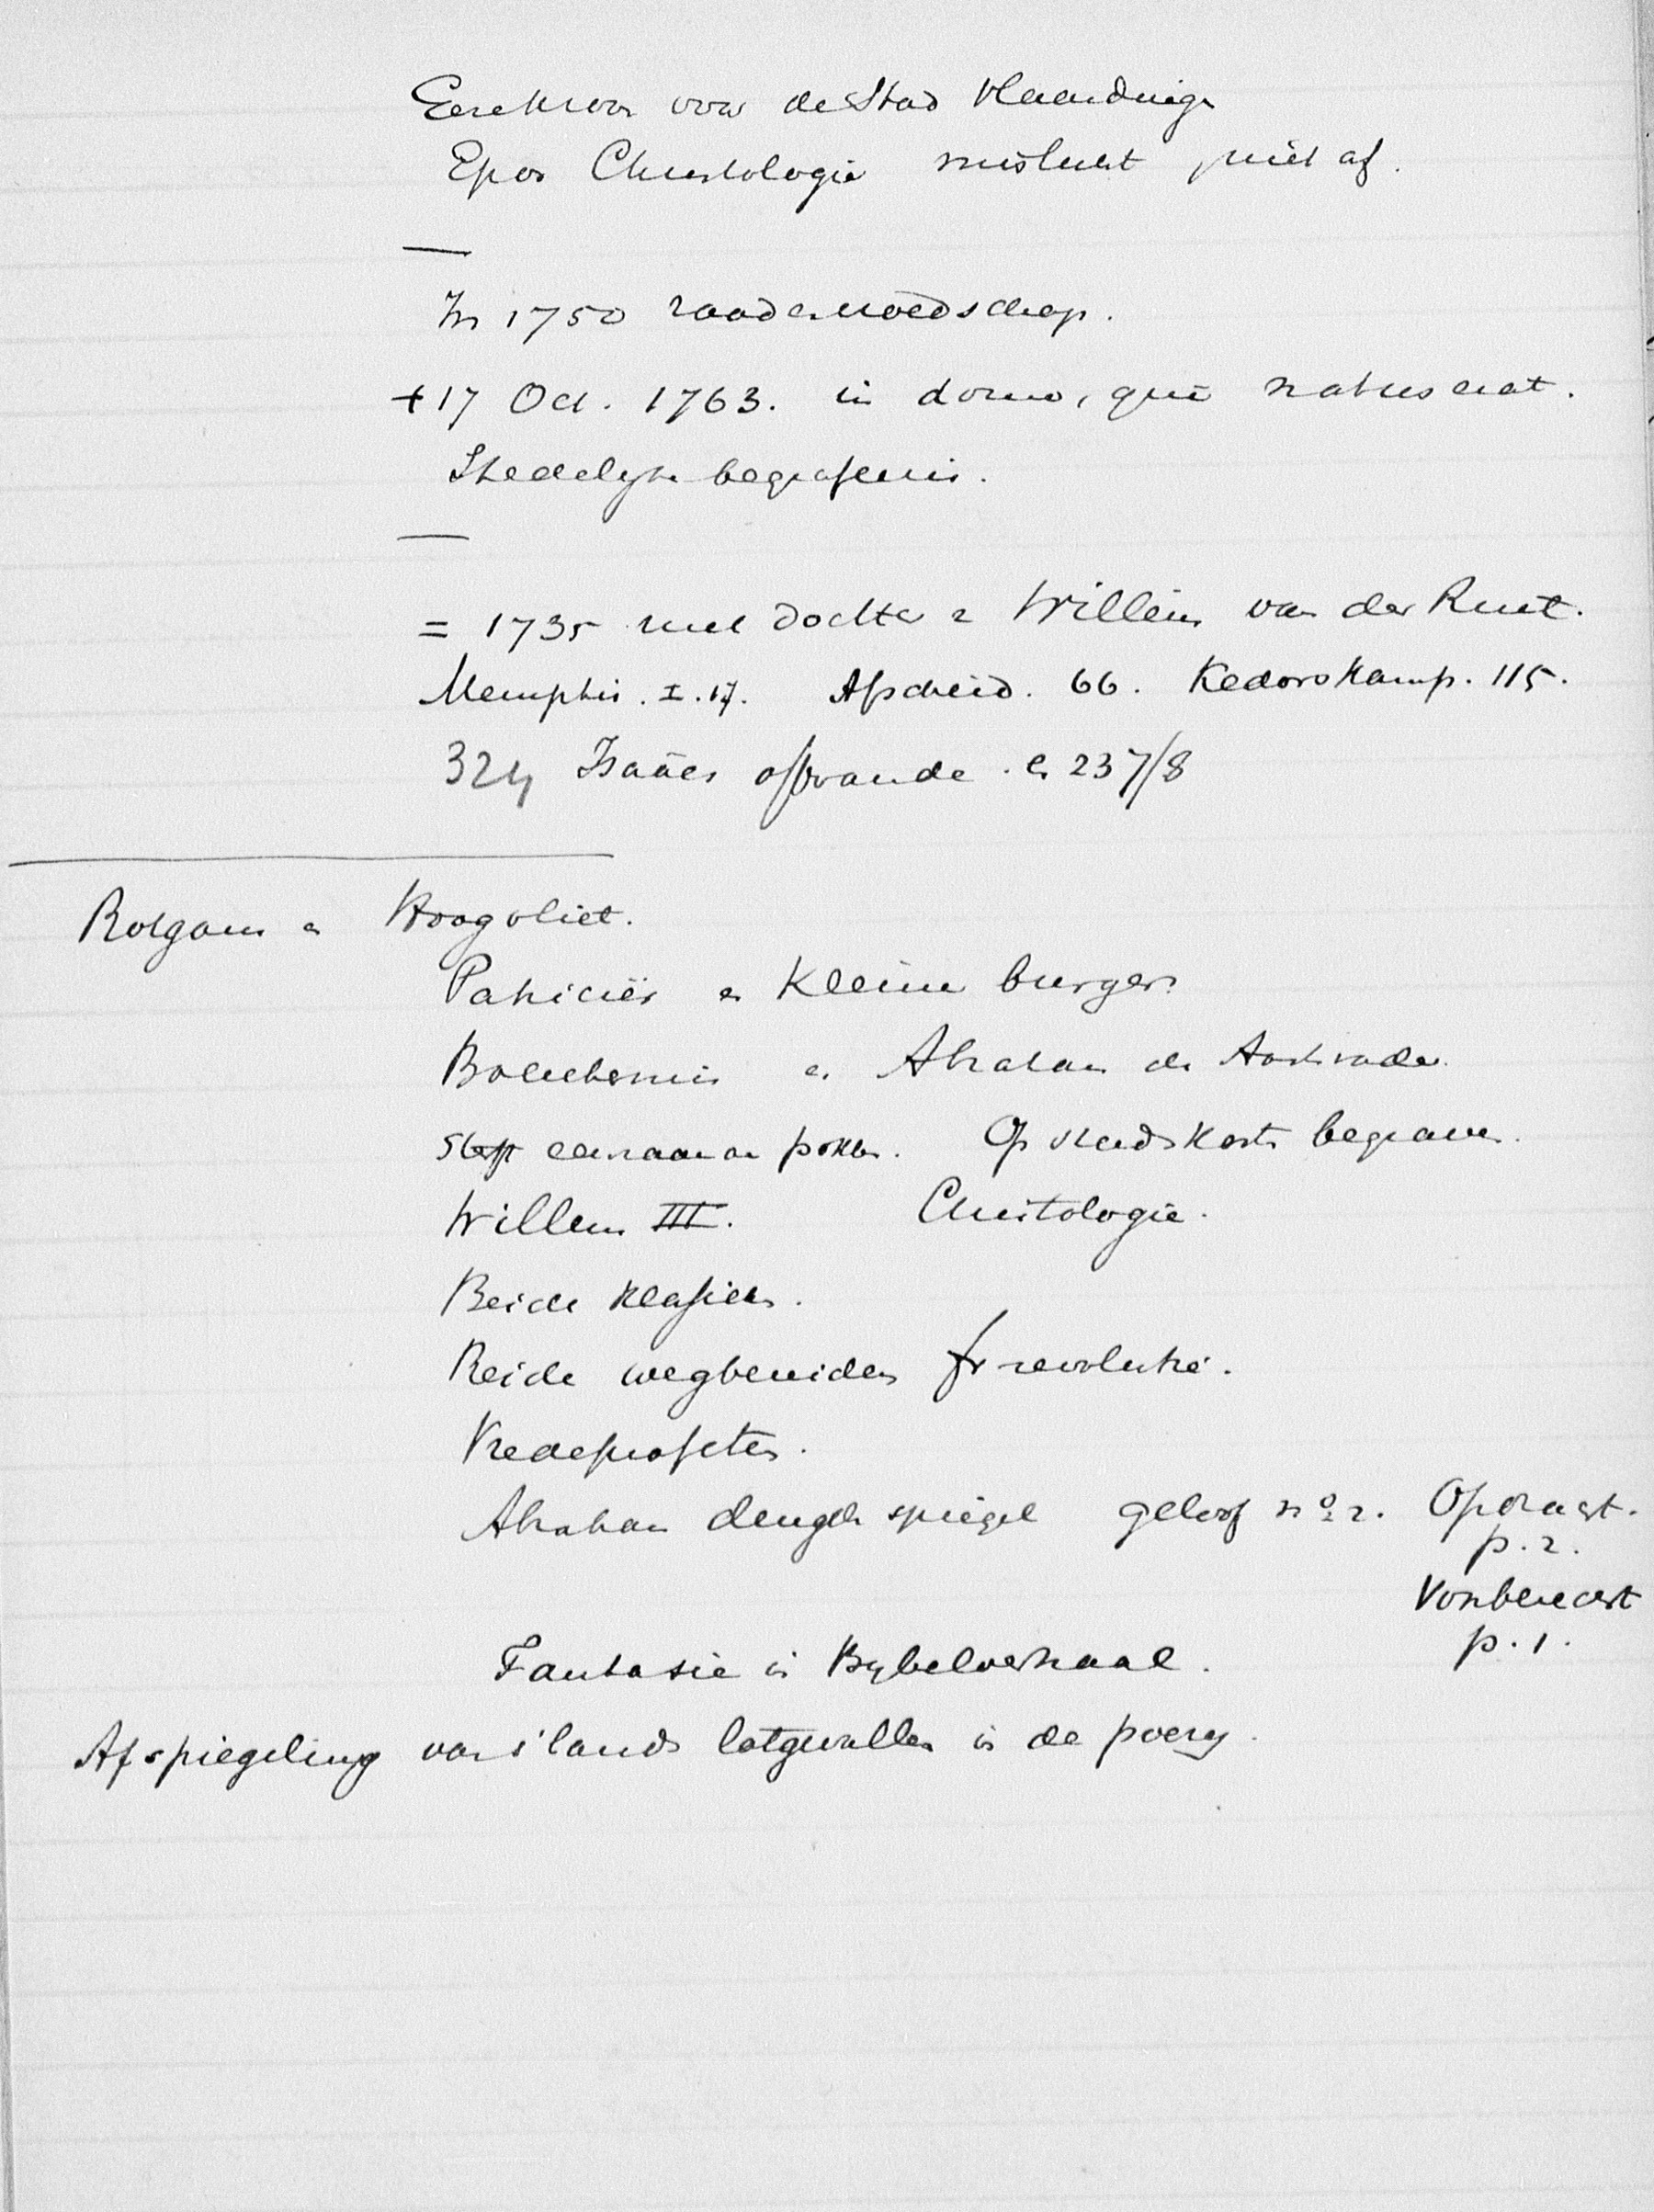 Eerekroon voor de Stad Vlaardinge
Epos Christologie mislukt, niet af.
In 1750 raad en vroedschap.
+ 17 Oct. 1763. in domo, quā natus erat.
Stedelyke begrafenis.
= 1735 met dochter v Willem van der Runt.
Memphis. I. 17. Afscheid. 66. Kedorskamp. 115.
324 Isaäcs offrande. en 237/8
Rotgans en Hoogvliet.
Patriciër en kleine burger.
Boerekermis en Abraham de Aartsvader.
Sterft eenzaam aan pokken. Op stadskosten begraven.
Willem III. Christologie.
Beide klassiek.
Beide wegbereiders fr revolutie.
Vredeprofeten.
Abraham deugden spiegel geloof no 2. Opdracht.
p. 2.
Voorbericht
p. 1.
Fantasie in Bybelverhaal.
Afspiegeling van 's lands lotgevallen in de poezy.